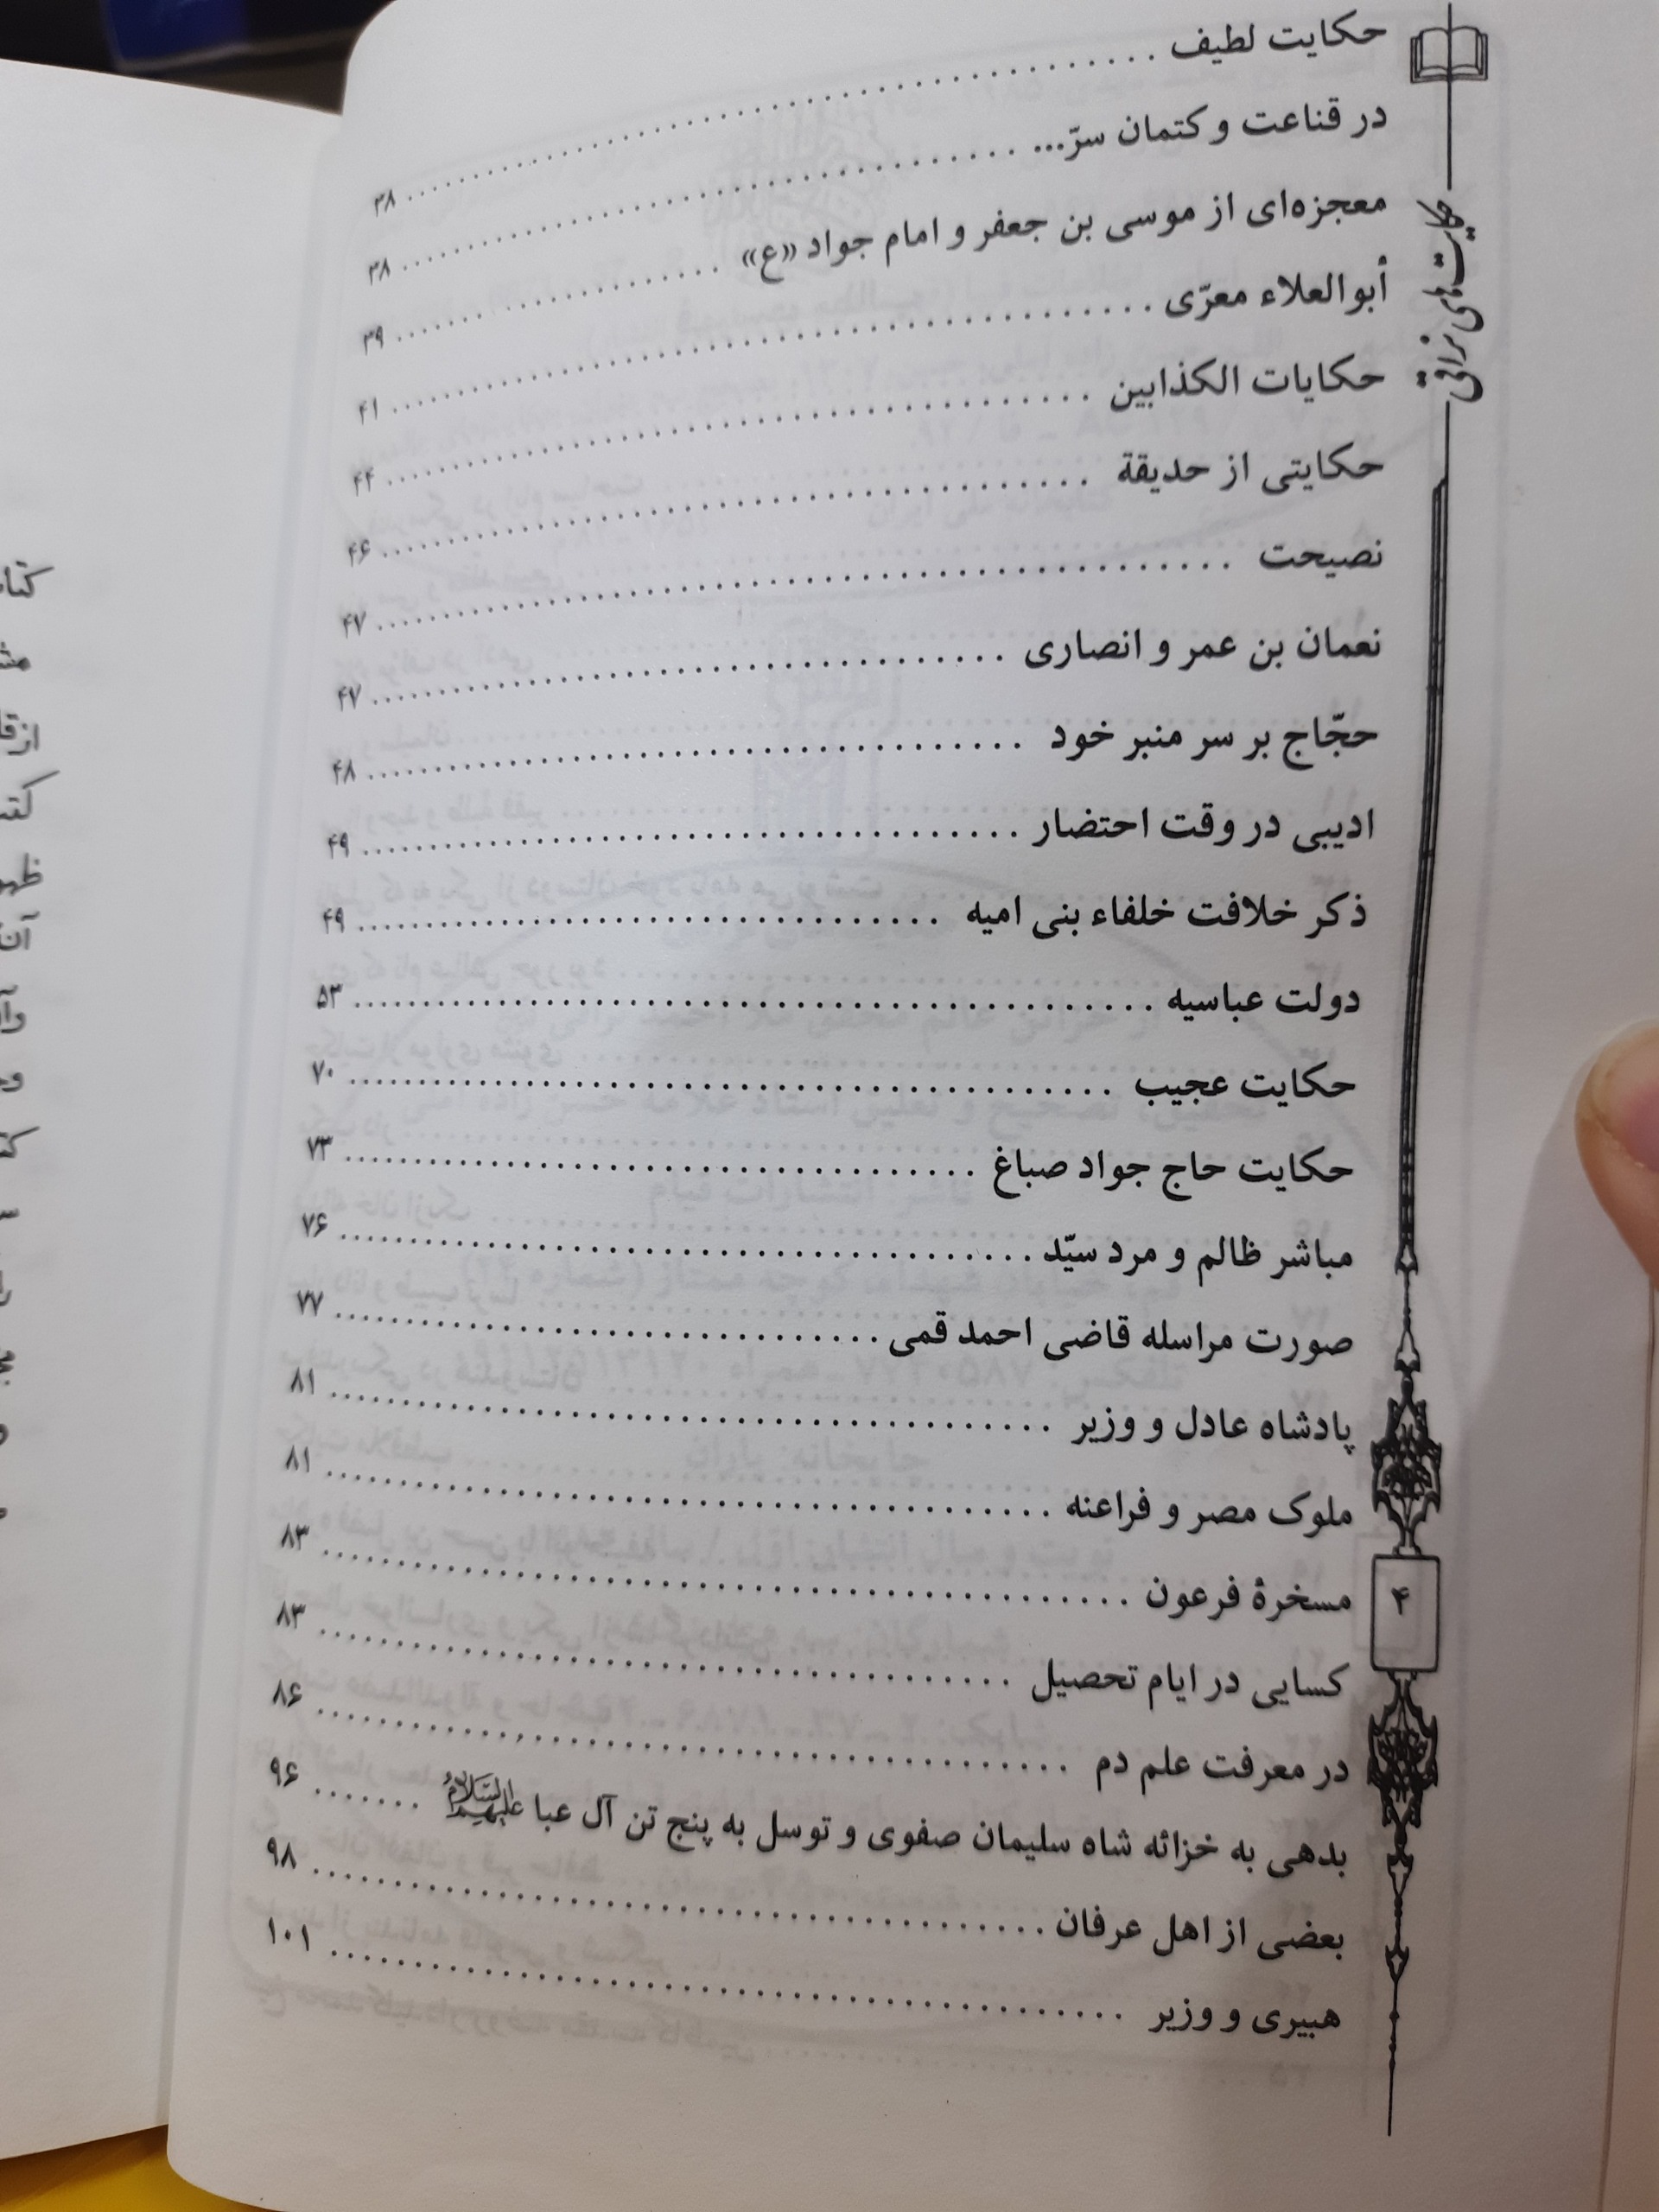 حکایت لطیف ........ ۳۸
در قناعت و کتمان سرّ... ........ ۳۸
معجزه‌ای از موسی بن جعفر و امام جواد «ع» ........ ۳۹
أبوالعلاء معرّی ........ ۴۱
حکایات الکذابین ........ ۴۴
حکایتی از حدیقة ........ ۴۶
نصیحت ........ ۴۷
نعمان بن عمر و انصاری ........ ۴۷
حجّاج بر سر منبر خود ........ ۴۸
ادیبی در وقت احتضار ........ ۴۹
ذکر خلافت خلفاء بنی امیه ........ ۴۹
دولت عباسیه ........ ۵۳
حکایت عجیب ........ ۷۰
حکایت حاج جواد صباغ ........ ۷۳
مباشر ظالم و مرد سیّد ........ ۷۶
صورت مراسله قاضی احمد قمی ........ ۷۷
پادشاه عادل و وزیر ........ ۸۱
ملوک مصر و فراعنه ........ ۸۱
مسخرۀ فرعون ........ ۸۳
کسایی در ایام تحصیل ........ ۸۳
در معرفت علم دم ........ ۸۶
بدهی به خزائه شاه سلیمان صفوی و توسل به پنج تن آل عبا علیهم السلام ........ ۹۶
بعضی از اهل عرفان ........ ۹۸
هبیری و وزیر ........ ۱۰۱
حکایت‌های نراقی
۴